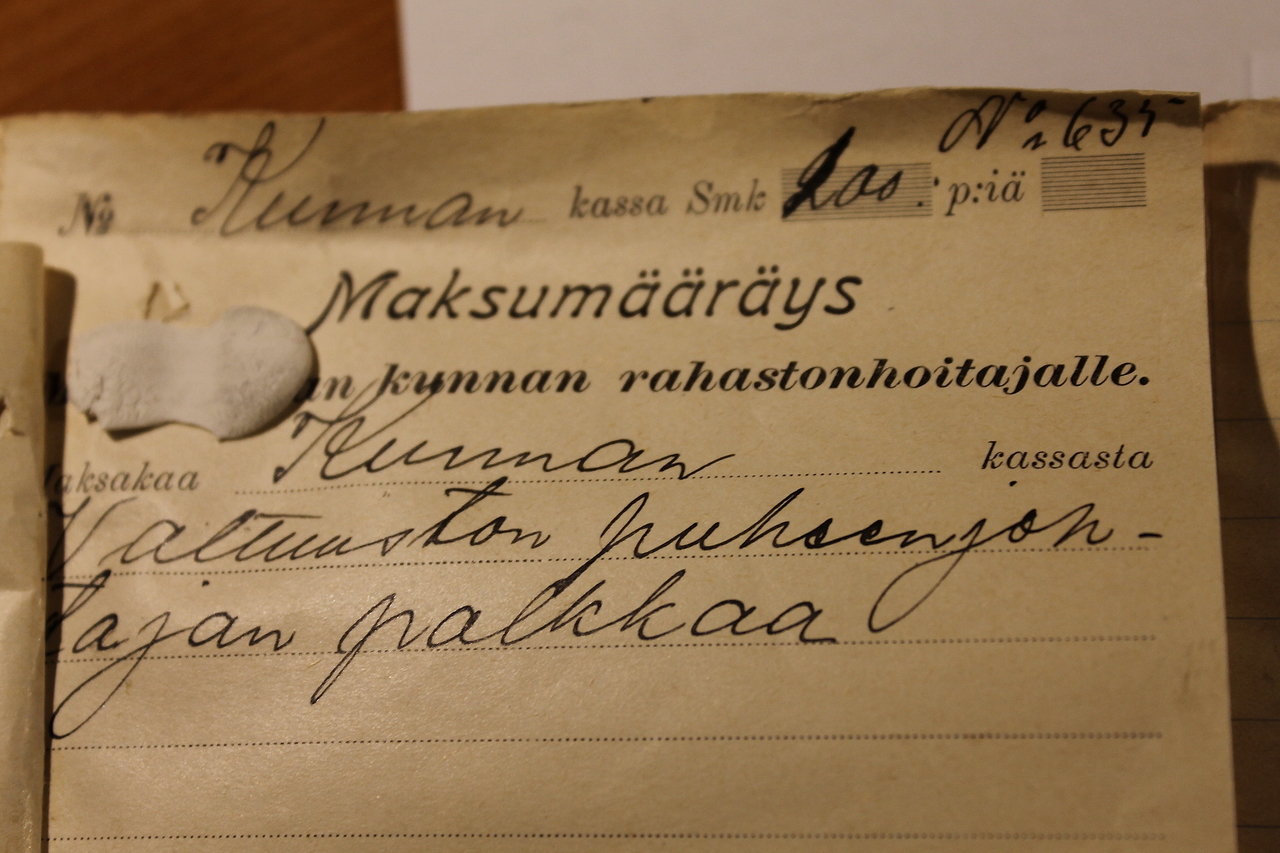 No 635
No Kunnan kassa Smk 200: p:iä
Maksumääräys
kunnan rahastonhoitajalle.
Maksakaa Kunnan kassasta
Valtuuston puheenjoh-
tajan palkkaa